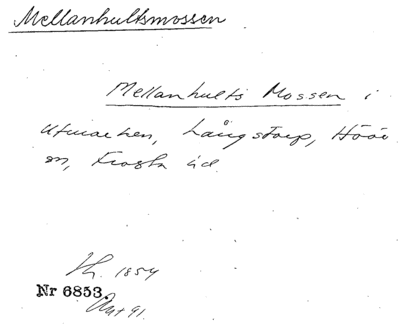 Mellanhultsmossen
Mellanhults Mossen i
Utmarken, Långstorp, Höörs
sn, Frosta hd.
Sk. 1854
Nr 6853.
Akt 91